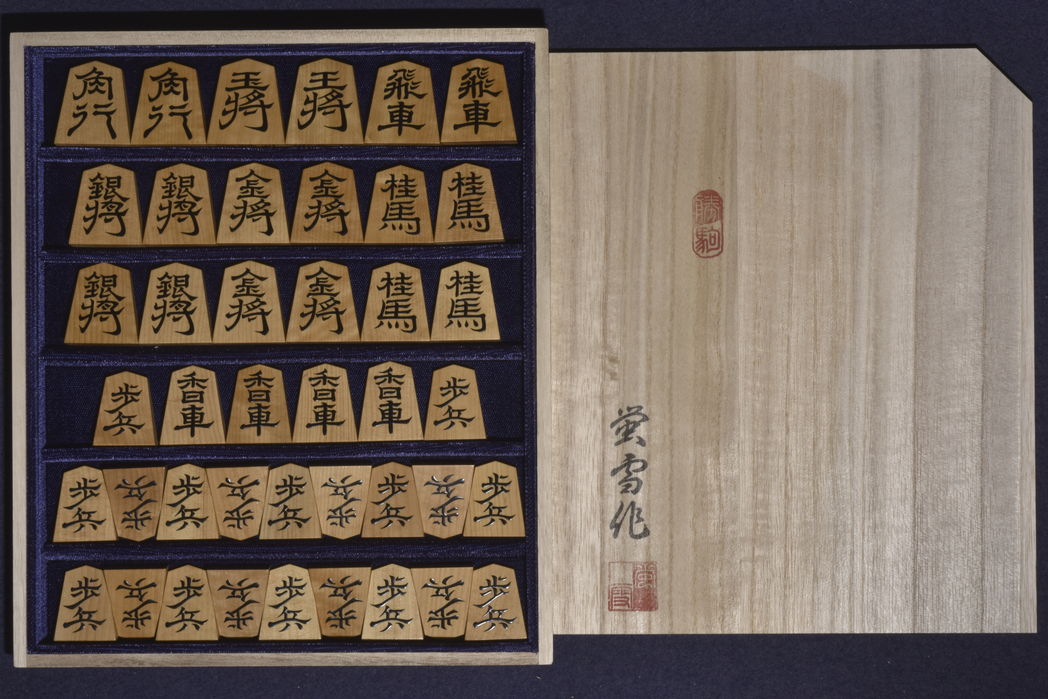 角行 角行 玉将 王将 飛車 飛車
銀将 銀将 金将 金将 桂馬 桂馬
銀将 銀将 金将 金将 桂馬 桂馬
歩兵 香車 香車 香車 香車 歩兵
歩兵 歩兵 歩兵 歩兵 歩兵 歩兵 歩兵 歩兵 歩兵
歩兵 歩兵 歩兵 歩兵 歩兵 歩兵 歩兵 歩兵 歩兵
勝駒
蛍雪作